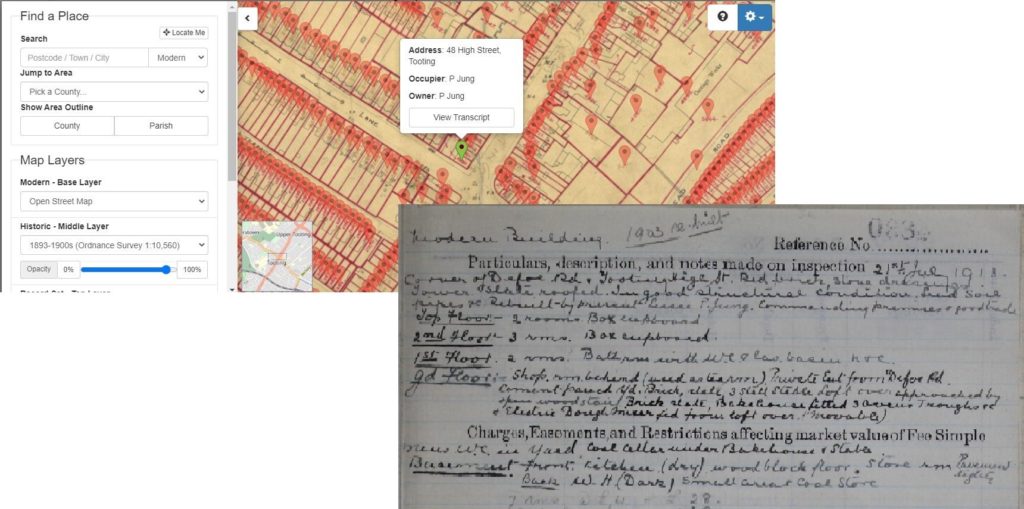 Find a Place
Locate Me
Search
Postcode / Town / City
Modern
Jump to Area
Pick a County...
Show Area Outline
County
Parish
Map Layers
Modern - Base Layer
Open Street Map
Historic - Middle Layer
1893-1900s (Ordnance Survey 1:10,560)
Opacity
0%
100%
Address: 48 High Street,
Tooting
Occupier: P Jung
Owner: P Jung
View Transcript
LANE
ROAD
Upper Tooting
Tooting
Modern Building 1903 re-built
Reference No
Particulars, description, and notes made on inspection 21st July 1913.
Corner of Defoe Rd, Tooting High St. Red brick, stone dressings
Tower & Slate roof in good structural condition. Soil
pipes Rebuilt by present Lessee P. Jung. Commanding premises & good trade
Top Floor - 2 rooms Box cupboard
2nd Floor - 3 rms. Box cupboard.
1st Floor. 2 rms. Bath rm with W.C & lav. basin
Gd Floor: - Shop. rm behind (used as tea rm) Private Ent from Defoe Rd.
Cement paved Yd. Brick, slate 3 stall Stable Loft over approached by
wood stair Brick slate Bakehouse fitted 3 Ovens Troughs
& Electric Dough Mixer, fed from loft over. (Movable)
Charges, Easements, and Restrictions affecting market value of Fee Simple
W.C. in Yard Coal Cellar under Bakehouse & Stable
Basement Front, Kitchen (dry) wood block floor. Store rm Pavement
lights
Back W.H (Dark) Small area Coal Store
7 rms, 28